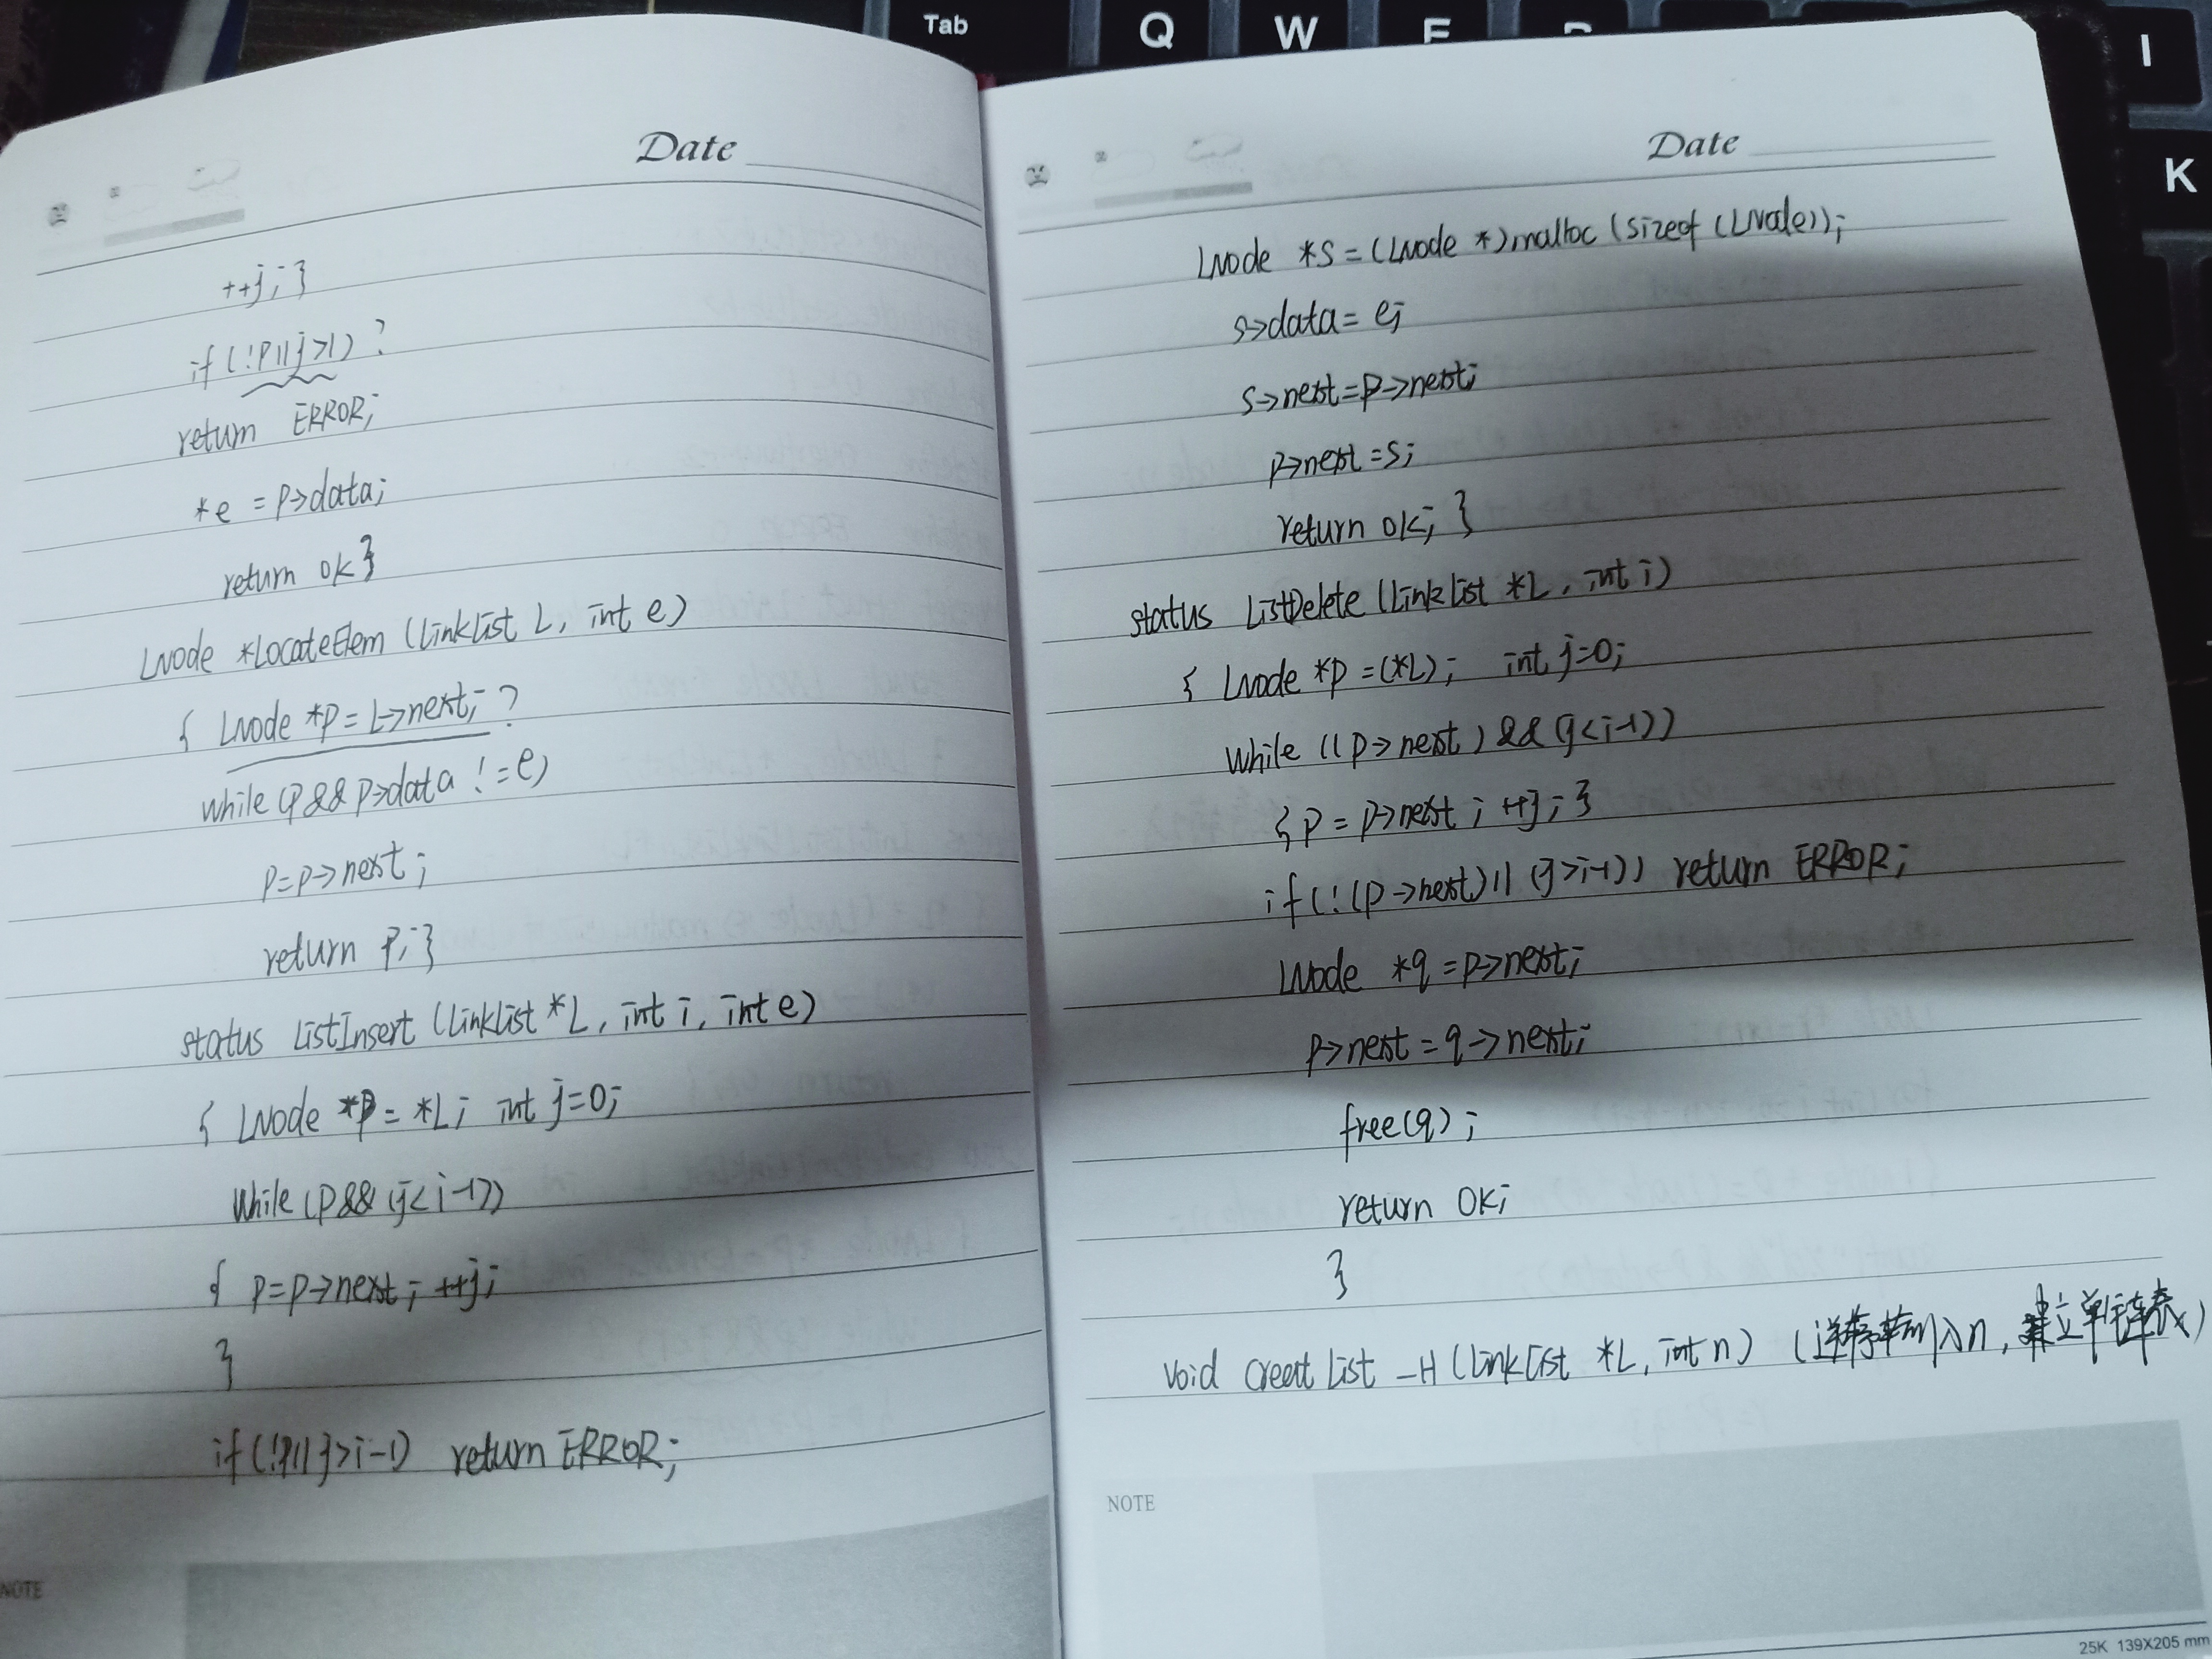 Tab Q W E I K
Date
++j; }
if (!P||j>1) ?
return ERROR;
*e = p->data;
return ok }
LNode *LocateElem (LinkList L, int e)
{ LNode *p = L->next; ?
while (p && p->data != e)
p=p->next;
return p; }
status ListInsert (LinkList *L, int i, int e)
{ LNode *p = *L; int j=0;
While (p && (j< i-1))
{ p=p->next; ++j;
}
if (!p|| j>i-1) return ERROR;
NOTE
Date
LNode *s = (LNode *)malloc (sizeof (LNode));
s->data = e;
s->next = p->next;
p->next = s;
return ok; }
status ListDelete (LinkList *L, int i)
{ LNode *p = (*L); int j=0;
While ((p->next) && (j<i-1))
{ p = p->next; ++j; }
if (!(p->next)|| (j>i-1)) return ERROR;
LNode *q = p->next;
p->next = q->next;
free(q);
return OK;
}
void Creat List _H (LinkList *L, int n) (逆序输入n, 建立单链表)
NOTE
25K 139X205 mm